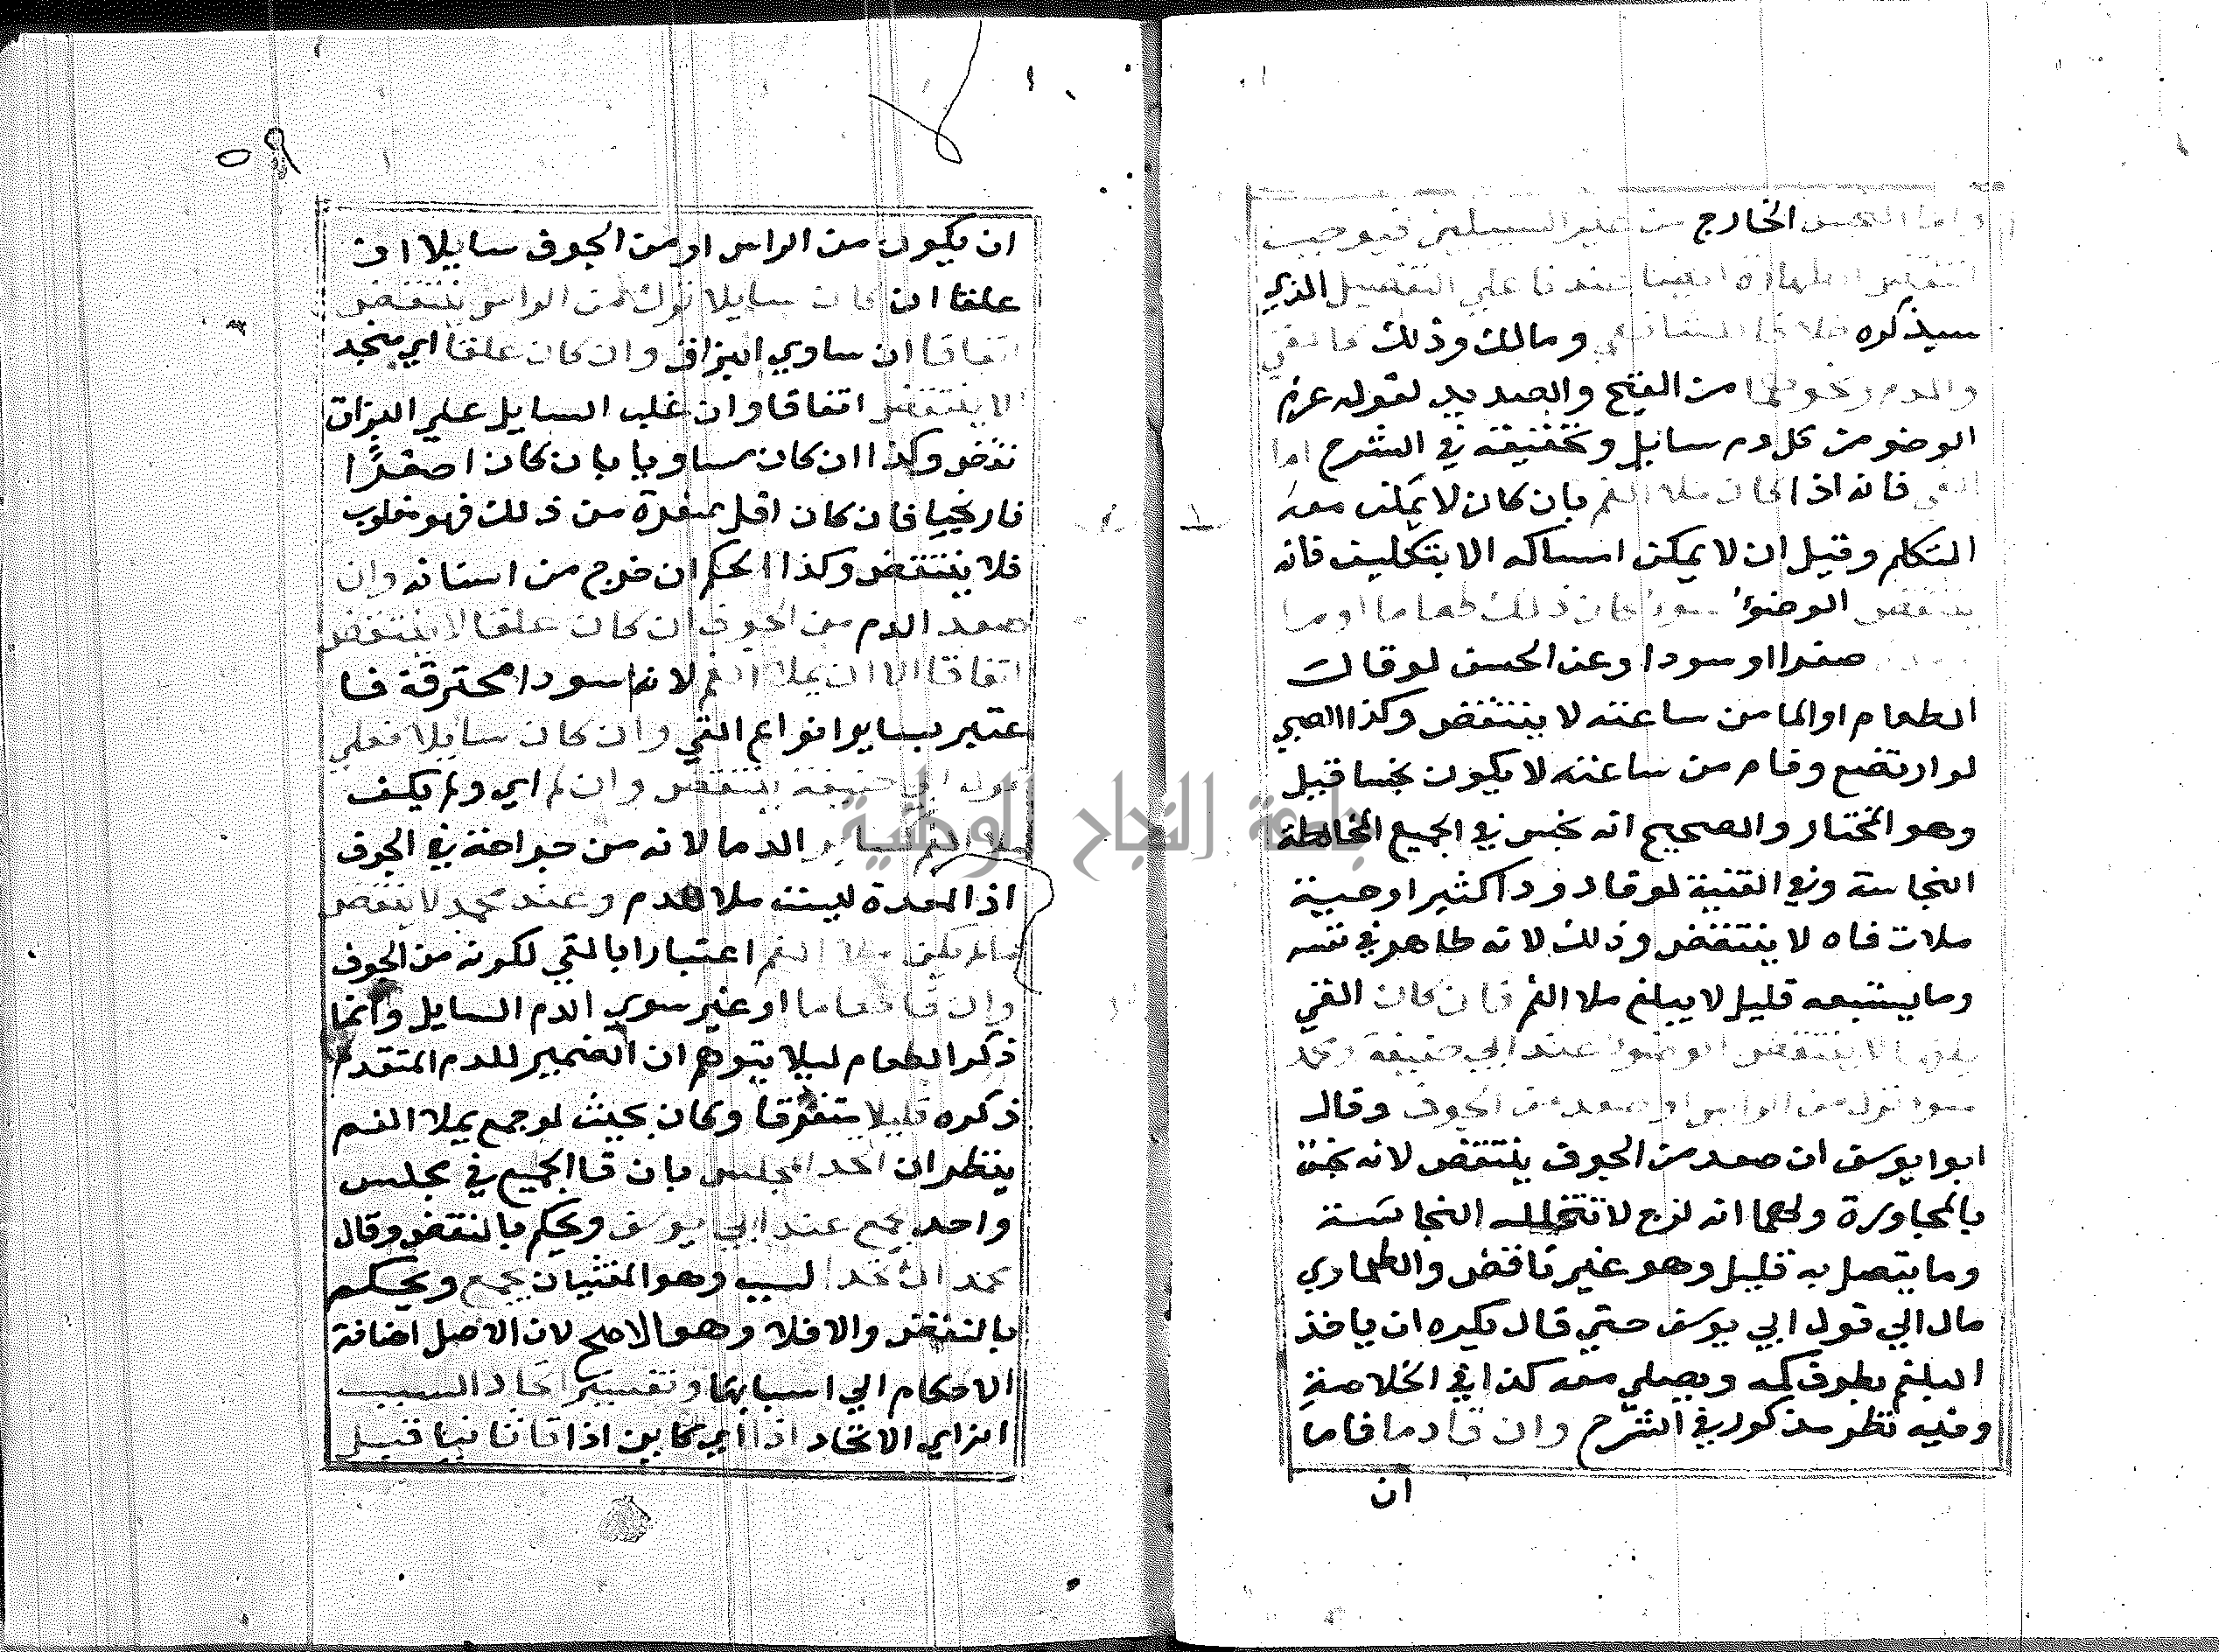 واما النجس الخارج من غير السبيلين فيوجب
انتقاض الطهارة ايضا عندنا علي التفصيل الذي
سيذكره خلافا للشافعي ومالك وذلك كالقي
والدم ونحوهما من القيح والصديد لقوله عم
الوضو من كل دم سايل وتحقيقه في الشرح اما
القي فانه اذا كان ملا الفم بان كان لا يمكن معه
التكلم وقيل ان لا يمكن امساكه الا بتكليف فانه
ينتقض الوضوء سوا كان ذلك طعاما او مرا
صفرا او سودا وعن الحسن لو قا
الطعام او الما من ساعته لا ينتقض وكذا الصبي
لو ارتضع وقا من ساعته لا يكون نجسا قيل
وهو المختار والصحيح انه نجس في الجميع المخالطة
النجاسة وفي القنية لو قا دودا كثيرا او حية
ملات فاه لا ينتقض وذلك لانه طاهر في نفسه
وما يستتبعه قليل لا يبلغ ملا الفم فان كان القي
بلغما لا ينتقض الوضوء عند ابي حنيفة ومحمد
سوا نزل من الراس او صعد من الجوف وقال
ابوا يوسف ان صعد من الجوف ينتقض لانه نجس
بالمجاورة ولهما انه لزج لا تتخلله النجاسة
وما يتصل به قليل وهو غير ناقض والطحاوي
مال الي قول ابي يوسف حتي قال يكره ان ياخذ
البلغم بطرف كمه ويصلي معه كذا في الخلاصة
وفيه نظر مذكور في الشرح وان قا دما فاما
ان
٥٩
ان يكون من الراس او من الجوف سايلا او
علقا ان كان سايلا نزل من الراس ينتقض
اتفاقا ان ساوي البزاق وان كان علقا اي منجمد
لا ينتقض اتفاقا وان غلب السايل علي البزاق
نقض وكذا ان كان مساويا بان كان اصفرا
نارنجيا فان كان اقل صفرة من ذلك فهو مغلوب
فلا ينتقض وكذا الحكم ان خرج من اسنانه وان
صعد الدم من الجوف ان كان علقا لا ينتقض
اتفاقا الا ان يملا الفم لانه سودا محترقة فا
عتبر بساير انواع القي وان كان سايلا فعلي
قول ابي حنيفة ينتقض وان لم اي ولم يكن
ملا الفم الدما لانه من جراحة في الجوف
اذ المعدة ليست ملا للدم وعند محمد لا ينتقض
مالم يكن ملا الفم اعتبارا بالقي لكونه من الجوف
وان قا طعاما او غير سوي الدم السايل وانما
ذكر الطعام ليلا يتوهم ان الضمير للدم المتقدم
ذكره قليلا متفرقا وكان بحيث لو جمع يملا الفم
ينظر ان اتحد المجلس بان قا الجميع في مجلس
واحد يجمع عند ابي يوسف ويحكم بالنقض وقال
محمد ان اتحد السبب وهو الغثيان يجمع ويحكم
بالنقض والا فلا وهو الاصح لان الاصل اضافة
الاحكام الي اسبابها وتفسير اتحاد السبب
انه اي الاتحاد اذا اي كاين اذا قا ثانيا قبل
جامعة النجاح الوطنية